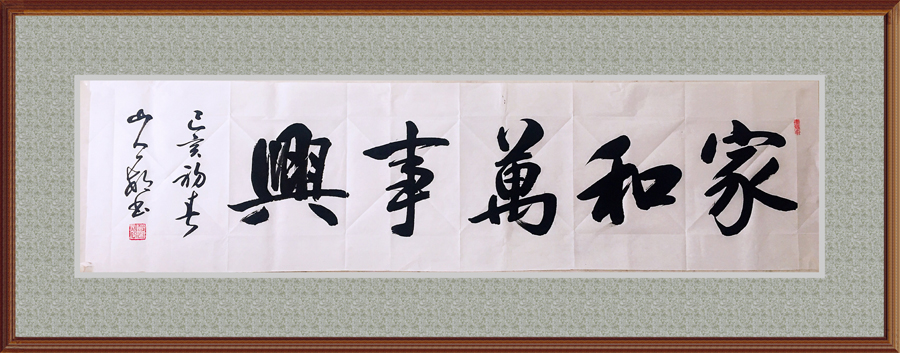 家和萬事興
己亥初春
山人
書